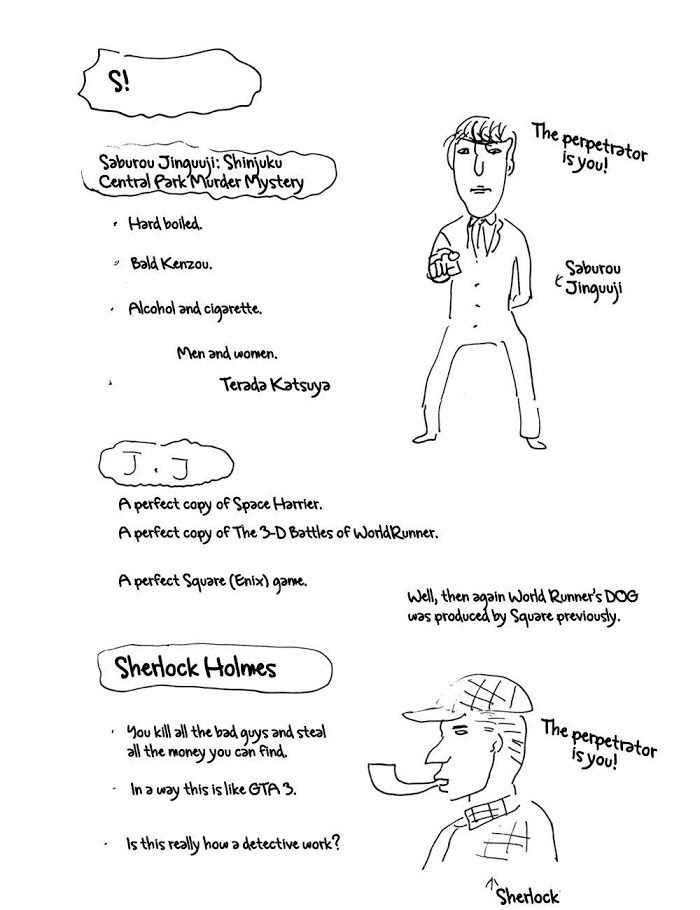 S!
Saburou Jinguuji: Shinjuku
Central Park Murder Mystery
· Hard boiled.
· Bald Kenzou.
· Alcohol and cigarette.
Men and women.
· Terada Katsuya
The perpetrator
is you!
Saburou
Jinguuji
J.J
A perfect copy of Space Harrier.
A perfect copy of The 3-D Battles of WorldRunner.
A perfect Square (Enix) game.
Well, then again World Runner's DOG
was produced by Square previously.
Sherlock Holmes
· You kill all the bad guys and steal
all the money you can find.
· In a way this is like GTA 3.
· Is this really how a detective work?
The perpetrator
is you!
Sherlock